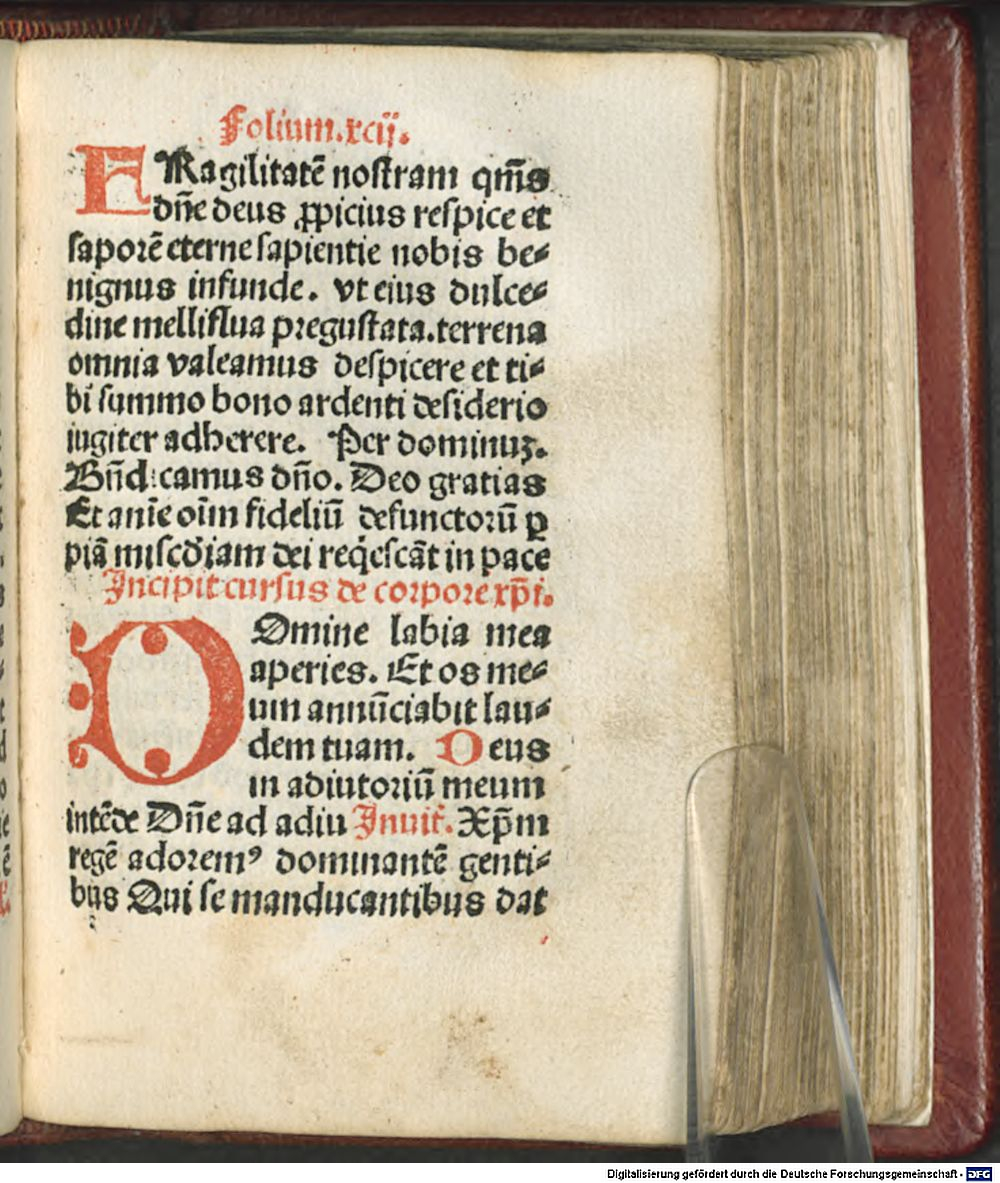 Folium.xcij.
FRagilitatē nostram qm̄s
dn̄e deus ꝓpicius respice et
saporē eterne sapientie nobis be⸗
nignus infunde. vt eius dulce⸗
dine melliflua pregustata.terrena
omnia valeamus despicere et ti⸗
bi summo bono ardenti desiderio
iugiter adherere. Per dominuꝫ.
Bn̄dicamus dn̄o. Deo gratias
Et anīe oīm fideliū defunctorū ꝑ
piā miscd̄iam dei reqescāt in pace
Incipit cursus de corpore xp̄i.
DOmine labia mea
aperies. Et os me⸗
um annūciabit lau⸗
dem tuam. Deus
in adiutoriū meum
intēde Dn̄e ad adiu Inuit̄. Xp̄m
regē adoremꝰ dominantē genti⸗
bus Qui se manducantibus dat
Digitalisierung gefördert durch die Deutsche Forschungsgemeinschaft - DFG